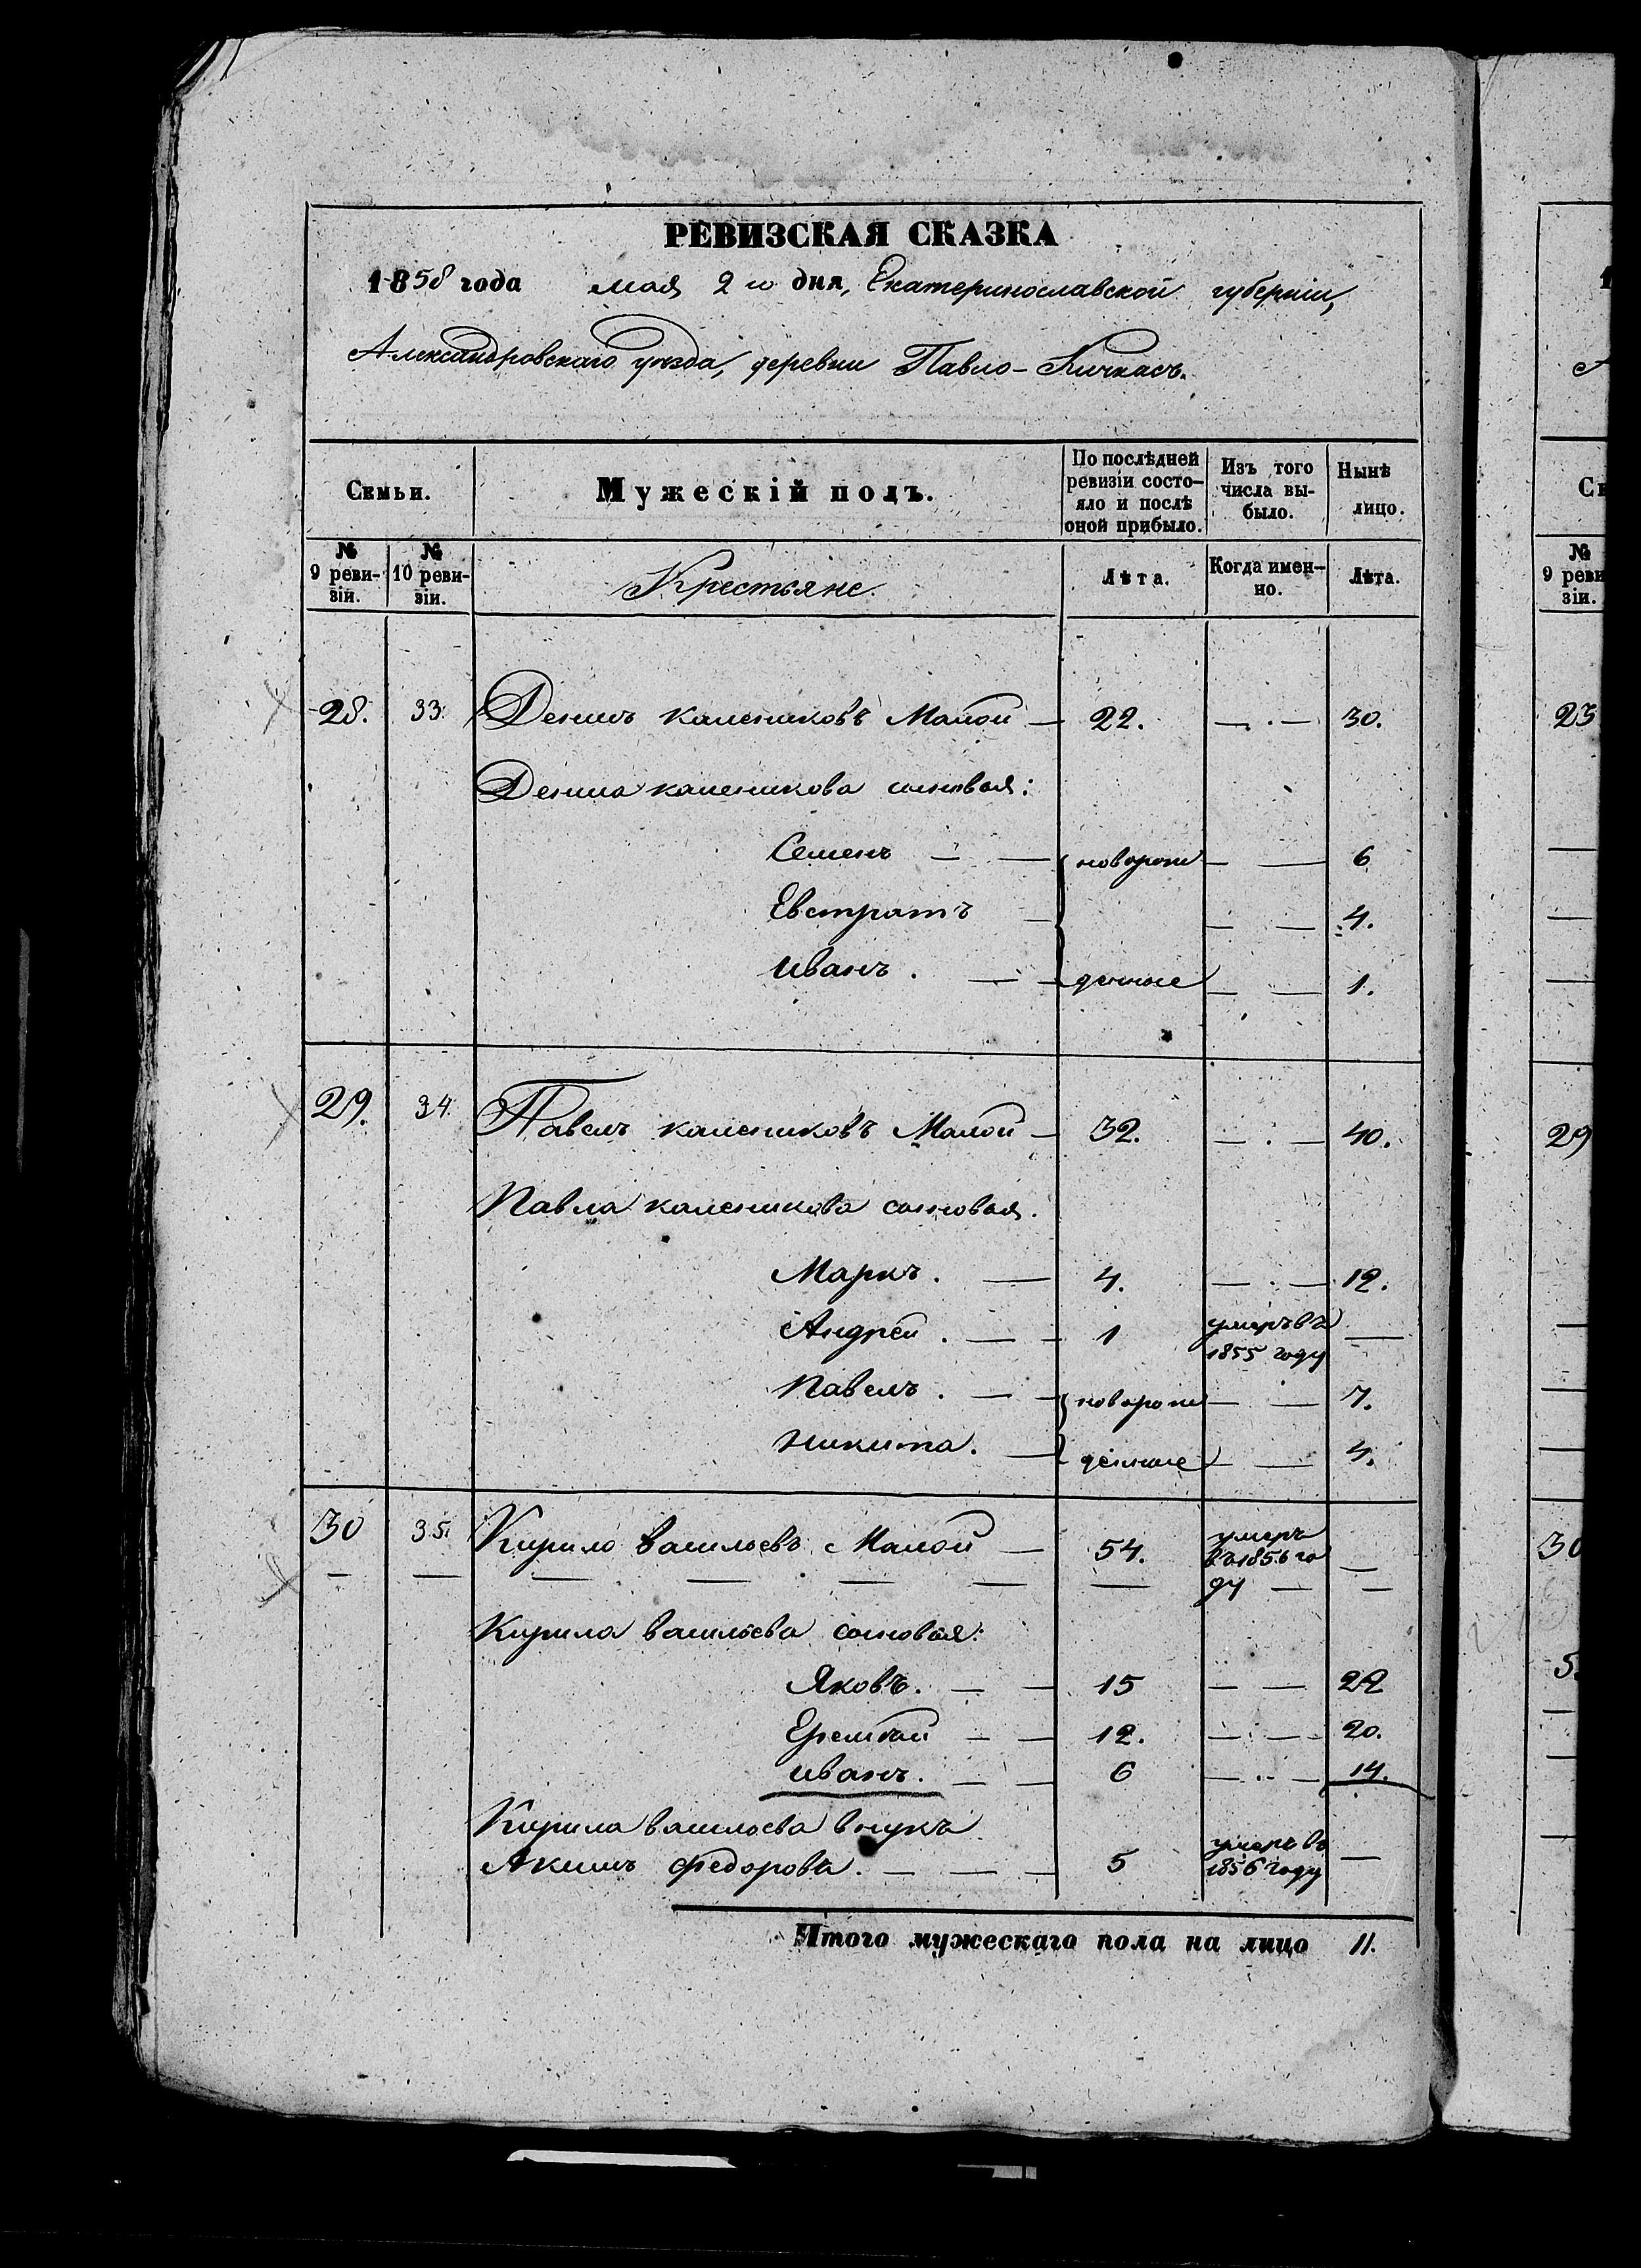 РЕВИЗСКАЯ СКАЗКА
1858 года мая 2 го дня, Екатеринославской губерніи,
Александровскаго уѣзда, деревни Павло-Кичкасъ.
Семьи.
Мужескій полъ.
По послѣдней ревизіи состояло и послѣ оной прибыло.
Изъ того числа выбыло.
Нынѣ лицо.
№ 9 ревизіи.
№ 10 ревизіи.
Крестьяне.
Лѣта.
Когда именно.
Лѣта.
28. 33. Денисъ калениковъ Малой — 22. — . — 30.
Дениса каленикова сыновья:
Семенъ — — новорож — — 6
Евстратъ — — — 4.
Иванъ . — — денные — — 1.
29. 34. Павелъ калениковъ Малой — 32. — . — 40.
Павла каленикова сыновья.
Маркъ . — 4. — . — 12.
Андрей . — — 1 умеръ въ 1855 году —
Павелъ . — — новорож — — 7.
Никита . — денные — — 4.
30 35. Кирило васильевъ Малой — 54. умеръ въ 1856 году —
Кирила васильева сыновья:
Яковъ. — — 15 — — 22
Еремѣй — — 12. — . — 20.
Иванъ. — — 6 — . — 14.
Кирила васильева внукъ
Акимъ федоровъ. — — — 5 умеръ въ 1856 году —
Итого мужескаго пола на лицо 11.
№ 9 реви зіи.
23
29
30